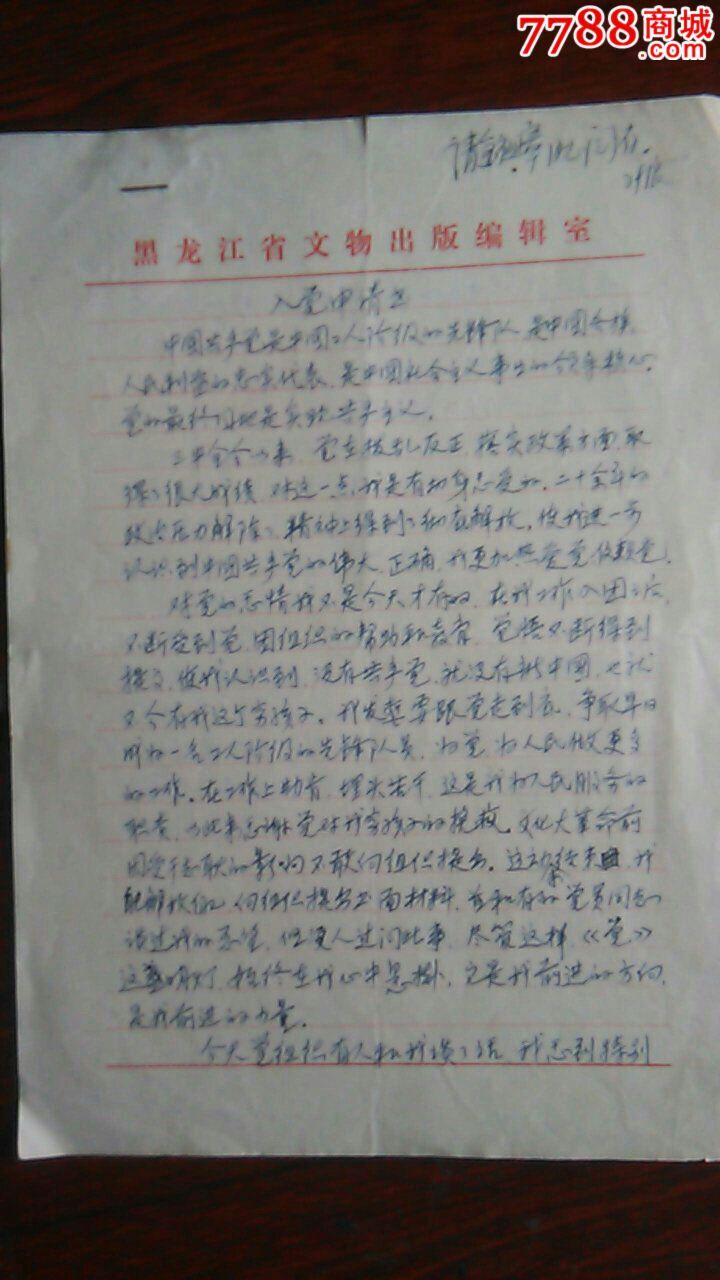 7788商城
.com
请
黑龙江省文物出版编辑室
入党申请书
中国共产党是中国工人阶级的先锋队,是中国各族
人民利益的忠实代表,是中国社会主义事业的领导核心。
党的最终目地是实现共产主义。
三中全会以来,党在拨乱反正,落实政策方面,取
得了很大成绩,对这一点我是有切身感受的。二十余年的
政治压力解除了,精神上得到了彻底解放,使我进一步
认识到中国共产党的伟大、正确,我更加热爱党依赖党。
对党的感情我不是今天才有的,在我工作入团之后,
不断受到党、团组织的帮助和教育,觉悟不断得到
提高,使我认识到,没有共产党,就没有新中国,也就
不会有我这个穷孩子。我发誓要跟党走到底,争取早日
成为一名工人阶级的先锋队员,为党、为人民做更多
的工作。在工作上勤奋,埋头苦干,这是我为人民服务的
职责,以此来感谢党对我穷孩子的挽救。文化大革命前
因受 的影响不敢向组织提出。这 结束,我
向组织提出书面材料,并和有的党员同志
谈过我的希望,但没人过问此事,尽管这样,《党》
这盏明灯,始终在我心中悬掛,它是我前进的方向,
是我前进的力量。
今天党组织有人和我谈了话,我感到特别